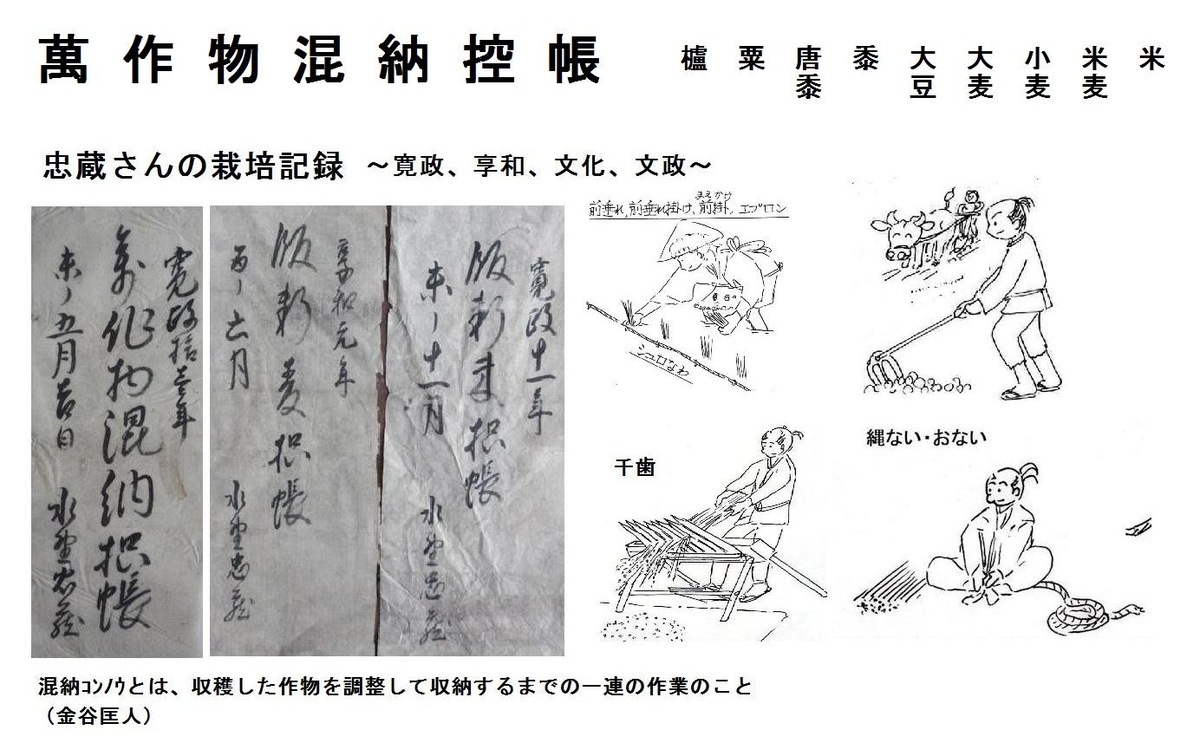 萬作物混納控帳
米
米麦
小麦
大麦
大豆
黍
唐黍
粟
櫨
忠蔵さんの栽培記録 ～寛政、享和、文化、文政～
寛政拾壱年
萬作物混納扣帳
未ノ五月吉日 水堂忠蔵
寛政十一年
飯料米扣帳
未ノ十一月 水堂忠蔵
享和元年
飯料麦扣帳
酉ノ六月 水堂忠蔵
まえかけ
前垂れ,前垂れ掛け、前掛、エプロン
シュロなわ
千歯
縄ない・おない
混納ｺﾝﾉｳとは、収穫した作物を調整して収納するまでの一連の作業のこと
（金谷匡人）